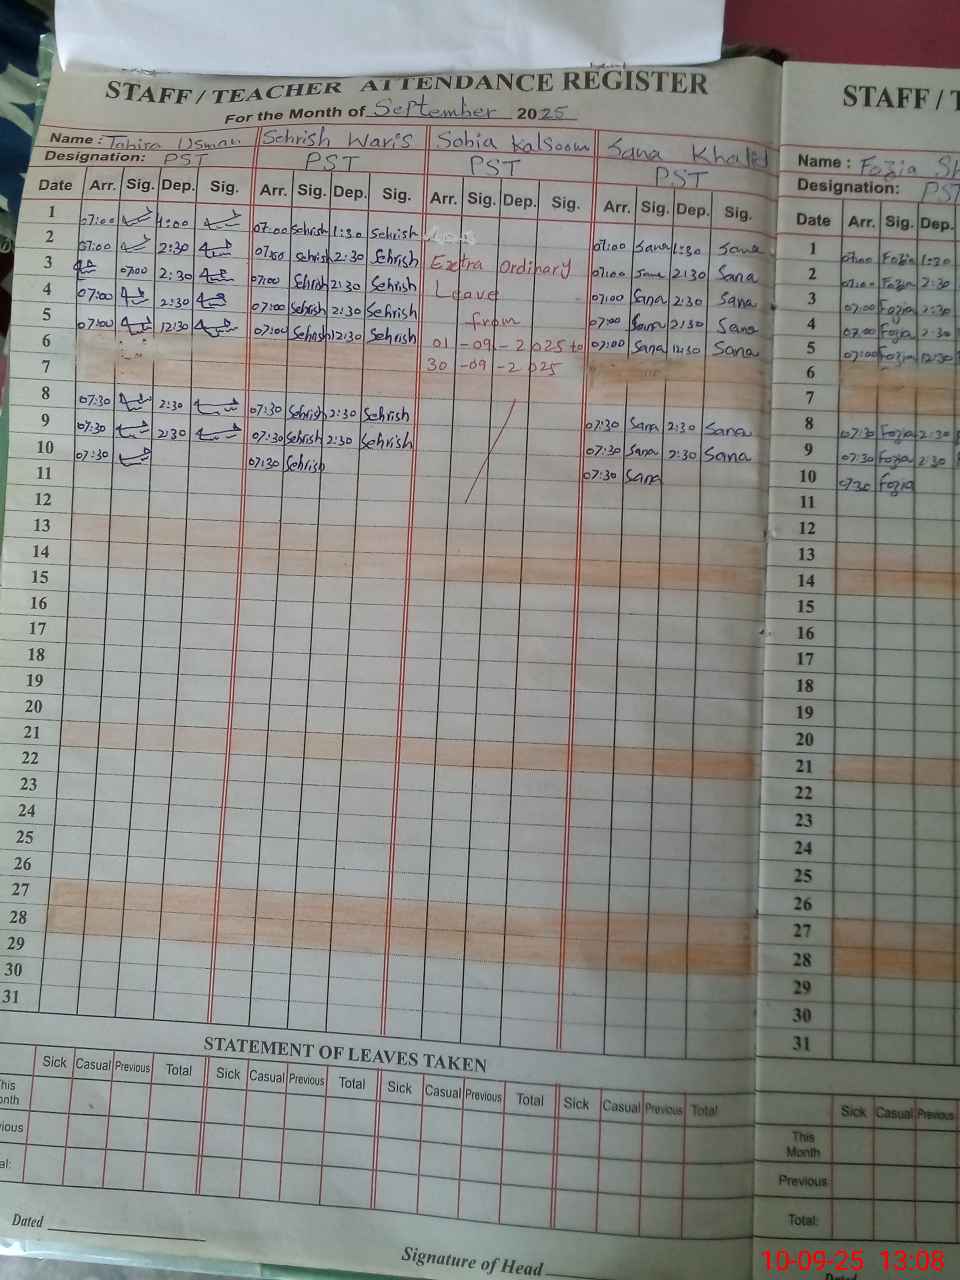 STAFF / TEACHER ATTENDANCE REGISTER
For the Month of September 2025
Name : Tahira Usman Sehrish Waris Sobia Kalsoom Sana Khalid
Designation: PST PST PST PST
Date Arr. Sig. Dep. Sig. Arr. Sig. Dep. Sig. Arr. Sig. Dep. Sig. Arr. Sig. Dep. Sig.
1 07:00 1:00 07:00 Sehrish 1:30 Sehrish 07:00 Sana 1:30 Sana
2 07:00 2:30 07:00 Sehrish 2:30 Sehrish Extra Ordinary 07:00 Sana 2:30 Sana
3 07:00 2:30 07:00 Sehrish 2:30 Sehrish Leave 07:00 Sana 2:30 Sana
4 07:00 2:30 07:00 Sehrish 2:30 Sehrish from 07:00 Sana 2:30 Sana
5 07:00 12:30 07:00 Sehrish 12:30 Sehrish 01 -09 -2025 to 07:00 Sana 12:30 Sana
6 30 -09 -2025
7
8 07:30 2:30 07:30 Sehrish 2:30 Sehrish 07:30 Sana 2:30 Sana
9 07:30 2:30 07:30 Sehrish 2:30 Sehrish 07:30 Sana 2:30 Sana
10 07:30 07:30 Sehrish 07:30 Sana
11
12
13
14
15
16
17
18
19
20
21
22
23
24
25
26
27
28
29
30
31
STATEMENT OF LEAVES TAKEN
Sick Casual Previous Total Sick Casual Previous Total Sick Casual Previous Total Sick Casual Previous Total
his
onth
ious
al:
Dated
Signature of Head
STAFF / T
Name : Fozia Sh
Designation: PST
Date Arr. Sig. Dep.
1 07:00 Fozia 1:30
2 07:00 Fozia 2:30
3 07:00 Fozia 2:30
4 07:00 Fozia 2:30
5 07:00 Fozia 12:30
6
7
8 07:30 Fozia 2:30
9 07:30 Fozia 2:30
10 07:30 Fozia
11
12
13
14
15
16
17
18
19
20
21
22
23
24
25
26
27
28
29
30
31
Sick Casual Previous
This
Month
Previous
Total:
Dated
10-09-25 13:08